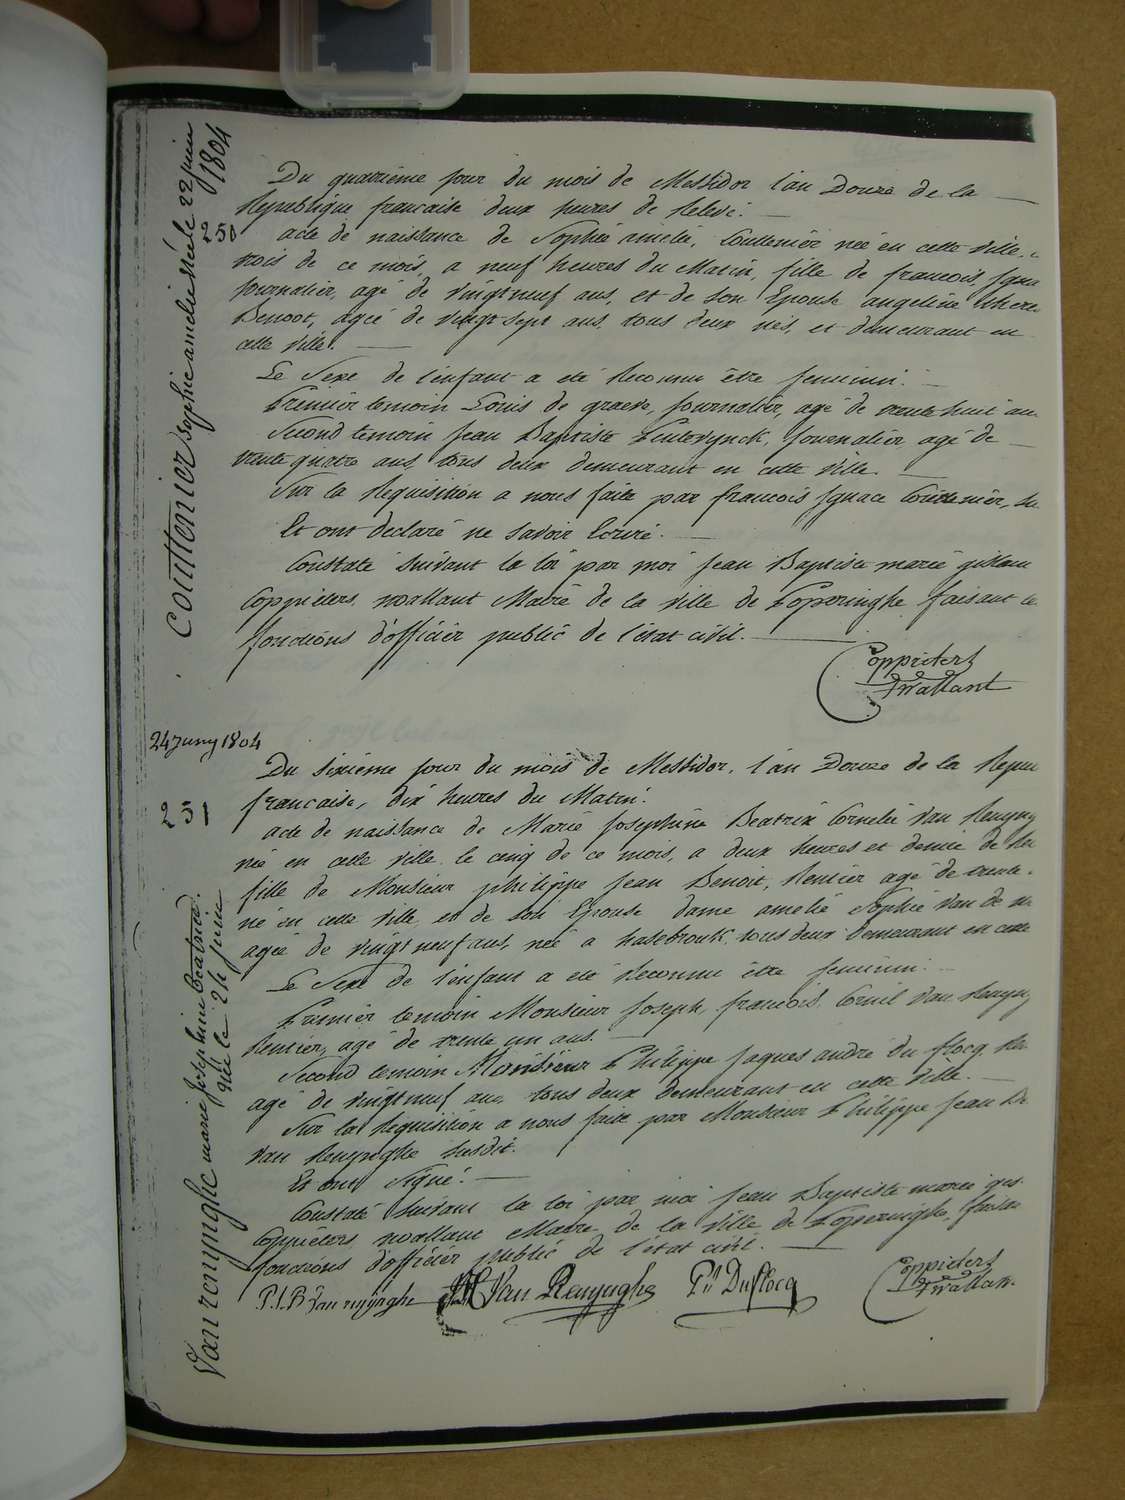 Couttenier Sophie amelie née le 22 juin
1804
Du quatrième jour du mois de Messidor l'an Douze de la
République francaise deux heures de Relevé.
250
acte de naissance de Sophie amelie, Couttenier née en cette ville, le
trois de ce mois, a neuf heures du Matin, fille de francois, Igna
Journalier, agé de vingt neuf ans, et de son Epouse angeline there
Benoot, agée de vingt sept ans, tous deux nés, et demeurant en
cette ville.
Le Sexe de l'enfant a été Reconnu être feminin.
Premier temoin Louis de graeve, Journalier, agé de trente huit an
Second temoin Jean Baptiste Pentevynck, Journalier, agé de
trente quatre ans, tous deux demeurant en cette ville.
Sur la Requisition a nous faite par francois Ignace Couttenier, su
Et ont declaré ne savoir Ecrire.
Constaté suivant la loi par moi Jean Baptiste marie gislain
Coppieters wallant Maire de la ville de Poperinghe faisant le
fonctions d'officier public de l'état civil.
Coppieters
Twallant
24 Juny 1804
Du sixième jour du mois de Messidor, l'an Douze de la Repu
francaise, dix heures du Matin.
251
acte de naissance de Marie Josephine Beatrix Cornelie Van Renyng
née en cette ville le cinq de ce mois, a deux heures et demie de Re
fille de Monsieur philippe Jean Benoit, Rentier agé de trente
né en cette ville et de son Epouse dame amelie Sophie Van de
agée de vingt neuf ans, née a hasebrouk, tous deux demeurant en cette
Le Sexe de l'enfant a été Reconnu être feminin.
Premier temoin Monsieur Joseph, francois Cornil Van Renyng
Rentier, agé de trente un ans.
Second temoin Monsieur Philippe Jaques andré du flocq Re
agé de vingt neuf ans tous deux demeurant en cette ville.
Sur la Requisition a nous faite par Monsieur Philippe Jean Be
Van Renynghe susdit.
Et ont signé.
Constaté suivant la loi par moi Jean Baptiste marie gis
Coppieters wallant Maire de la ville de Poperinghe, faisan
fonctions d'officier public de l'état civil.
P.J.B Van renynghe
Van Renynghe
Ph Duflocq
Coppieters
Twallant
Van renynghe marie josephine Beatrice.
née le 24 juin